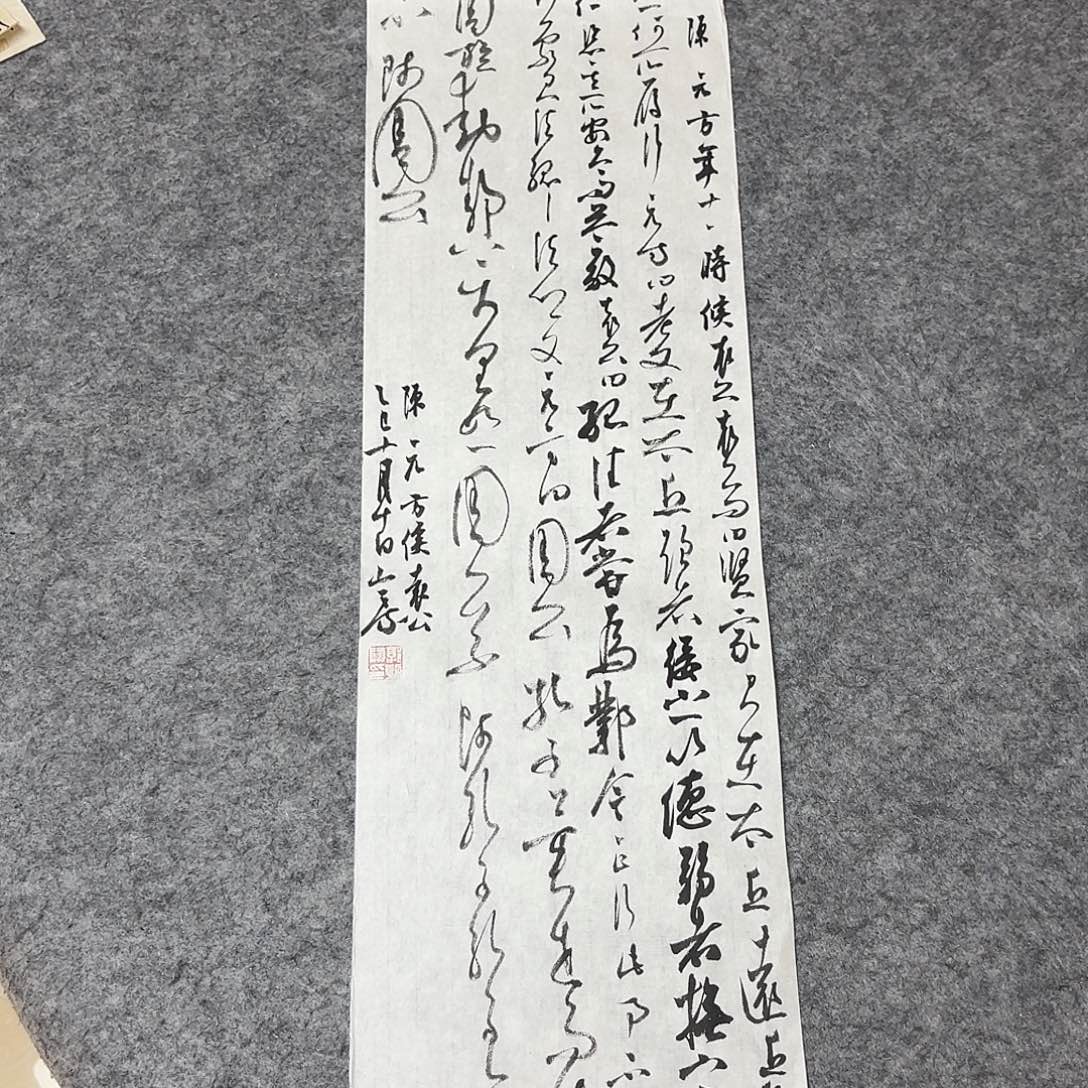 陳元方年十一時候袁公袁公問曰賢家君在太丘遠近
之何所履行元方曰老父在太丘强者綏之以德弱者撫之以
仁恣其所安久而益敬袁公曰孤往者嘗為鄴令正行此事不
卿家君法孤孤法卿父元方曰周公孔子異世而出
周旋動静萬里如一周公不師孔子孔子亦
不師周公
陳元方候袁公
乙巳十月十日